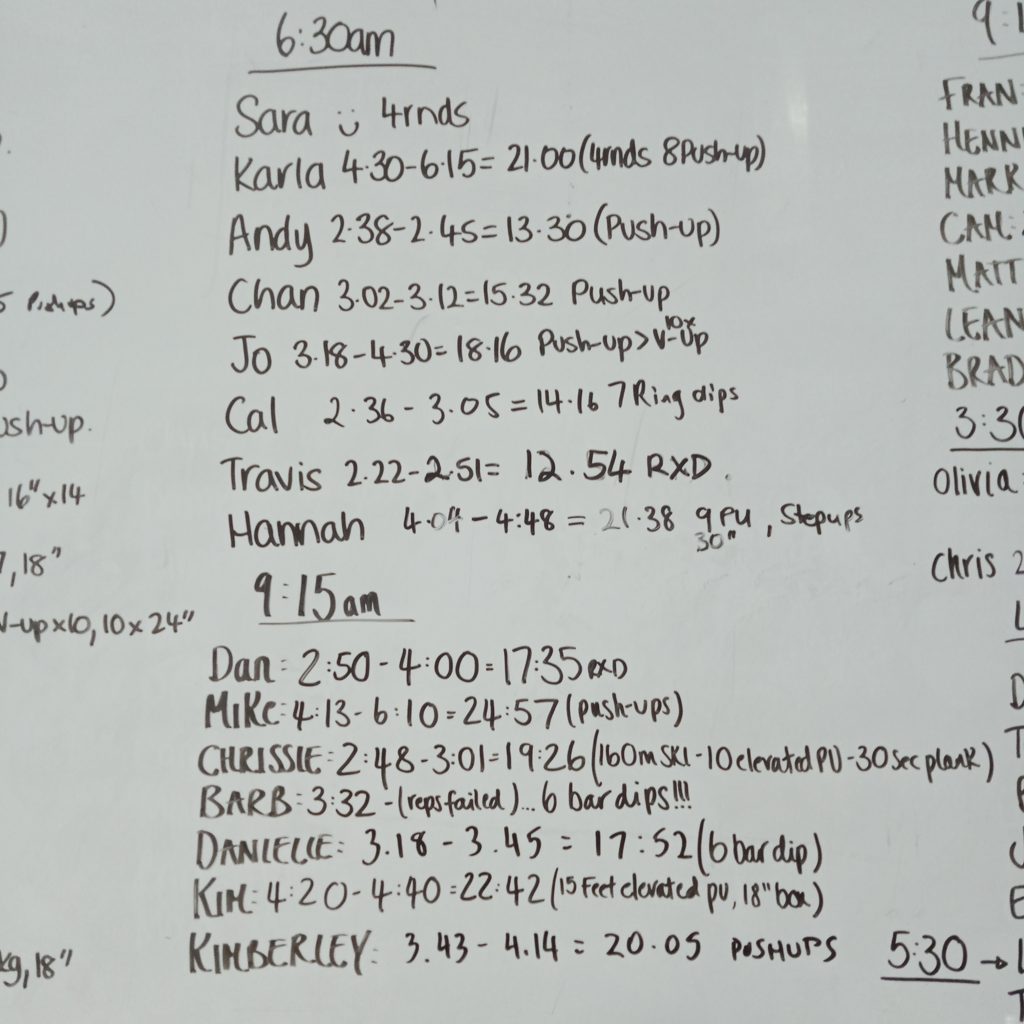 6:30am
Sara 4rnds
Karla 4.30-6.15= 21.00 (4rnds 8Push-up)
Andy 2.38-2.45=13.30 (Push-up)
Chan 3.02-3.12=15.32 Push-up
Jo 3.18-4.30= 18.16 Push-up>V-Up 10x
Cal 2.36 - 3.05 = 14.16 7 Ring dips
Travis 2.22-2.51= 12.54 RXD.
Hannah 4.04 - 4:48 = 21.38 9 PU, Stepups
30"
9:15am
Dan: 2:50-4:00=17:35 RXD
MIKE: 4:13-6:10=24:57 (push-ups)
CHRISSIE: 2:48-3:01=19:26 (160m SKI-10 elevated PU-30 sec plank)
BARB: 3:32 -(reps failed)... 6 bar dips!!!
DANIELLE: 3.18 - 3.45 = 17:52 (6 bar dip)
KIM: 4:20-4:40=22:42 (15 Feet elevated PU, 18" box)
KIMBERLEY: 3.43 - 4.14 = 20.05 PUSHUPS
ush-up.
16"x14
, 18"
V-up x10, 10 x 24"
kg, 18"
FRAN
HENN
MARK
CAM:
MATT
LEAN
BRAD
3:30
Olivia
Chris 2
5:30 →